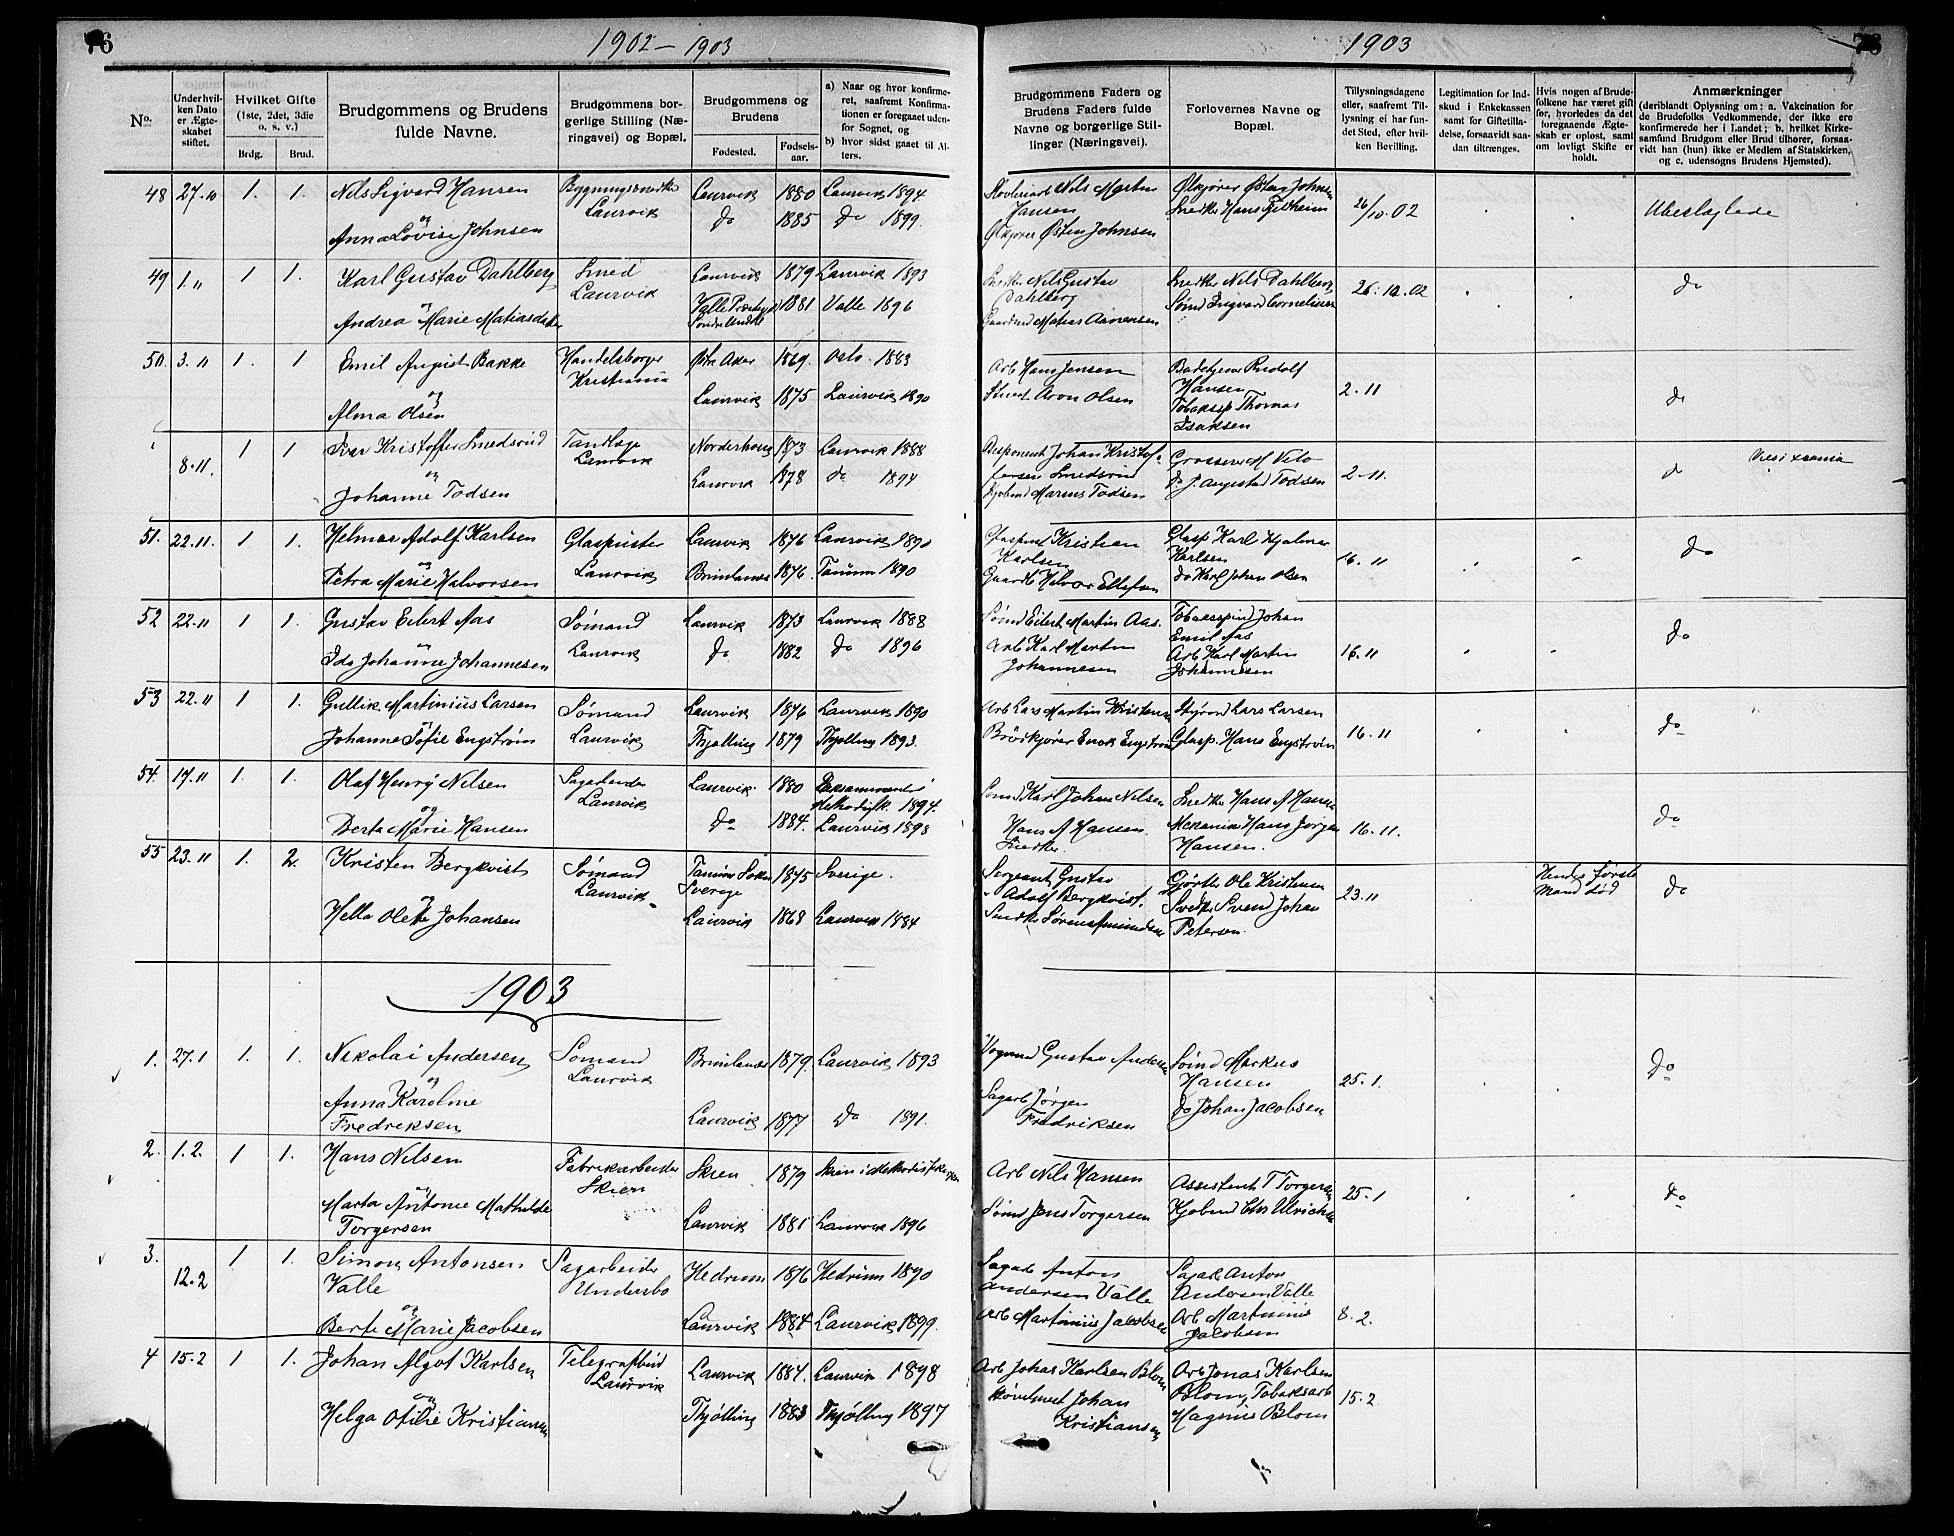 76
1902 – 1903
No.
Under hvil-
ken Dato
er Ægte-
skabet
stiftet.
Hvilket Gifte
(1ste, 2det, 3die
o. s. v.)
Brdg.
Brud.
Brudgommens og Brudens
fulde Navne.
Brudgommens bor-
gerlige Stilling (Næ-
ringsvei) og Bopæl.
Brudgommens og
Brudens
Fødested.
Fødsels-
aar.
a) Naar og hvor konfirme-
ret, saafremt Konfirma-
tionen er foregaaet uden-
for Sognet, og
b) hvor sidst gaaet til Al-
ters.
48 27-10 1. 1. Nils Sigvard Hansen Bygningssnedker Laurvik 1880 Laurvik 1894
og Laurvik do 1885 do 1899.
Anna Lovise Johnsen
49 1. 11 1 1. Karl Gustav Dahlberg Smed Laurvik 1879 Laurvik 1893
og Laurvik Valle 1881 Valle 1896
Andrea Marie Matiasdatter
50. 3. 11 1. 1 Emil August Bakke Handelsborger Østre Aker 1869. Oslo. 1883
og Kristiania Laurvik 1875 Laurvik 1890
Alma Olsen
8-11. 1 1 Iver Kristoffer Smedsrud Tandlæge Norderhoug 1873 Laurvik 1888
og Laurvik Laurvik 1878 do 1894
Johanne Todsen
51. 22.11. 1 1. Helmer Adolf Karlsen Glaspuster Laurvik 1876 Laurvik 1890
og Laurvik Brunlanes 1876. Tanum 1890
Petra Marie Halvorsen
52 22-11 1 1. Gustav Eilert Aas Sømand Laurvik 1873 Laurvik 1888
og Laurvik do 1882 do 1896
Ida Johanne Johannesen
53 22.11 1 1. Gullik Martinius Larsen Sømand Laurvik 1876 Laurvik 1890
og Laurvik Thjølling 1879 Thjølling 1893.
Johanne Sofie Engstrøm
54. 19.11 1. 1. Olaf Henry Nilsen Sagarbeider Laurvik. 1880 Methodistk. 1894.
og Laurvik do 1884. Laurvik 1898
Berta Marie Hansen
55 23.11 1. 2. Kristen Bergkvist Sømand Tanum Sokn 1875 Sverige.
og Laurvik. Sverige
Hella Olette Johansen Laurvik 1868 Laurvik 1884
1903
1. 27.1 1. 1. Nikolai Andersen Sømand Brunlanes 1879. Laurvik 1893
og Laurvik
Anna Karoline Laurvik 1877 do 1891.
Fredriksen
2. 1.2. 1 1. Hans Nilsen Fabrikarbeider Skien 1879 Skien i Methodistkirken
og Skien
Marta Antonie Mathilde Laurvik 1881 Laurvik 1896
Torgersen
3. 12.2 1 1. Simon Antonsen Sagarbeider Hedrum 1876 Hedrum 1890
Valle Undersbo
og
Berte Marie Jacobsen Laurvik 1884 Laurvik 1899.
4 15.2 1 1. Johan Algot Karlsen Telegrafbud Laurvik 1884. Laurvik 1898
og Laurvik
Helga Otilie Kristiansen Thjølling 1883 Thjølling 1897
1903
Brudgommens Faders og
Brudens Faders fulde
Navne og borgerlige Stil-
linger (Næringsvei).
Forlovernes Navne og
Bopæl.
Tillysningsdagene
eller, saafremt Til-
lysning ei har fun-
det Sted, efter hvil-
ken Bevilling.
Legitimation for Ind-
skud i Enkekassen
samt for Giftetilla-
delse, forsaavidt saa-
dan tiltrænges.
Hvis nogen af Brude-
folkene har været gift
før, hvorledes da det
foregaaende Ægte-
skab er opløst, samt
om lovligt Skifte er
holdt.
Anmærkninger
(deriblandt Oplysning om: a. Vakcination for
de Brudefolks Vedkommende, der ikke ere
konfirmerede her i Landet; b. hvilket Kirke-
samfund Brudgom eller Brud tilhører, forsaa-
vidt han (hun) ikke er Medlem af Statskirken,
og c. udensogns Brudens Hjemsted).
Nils Martin Ølkjører Østen Johnsen
Hansen Snedker Hans Fjeldheim 26/10.02 Ubeslægtede
Ølkjører Østen Johnsen
Snedker Nils Gustav Snedker Nils Dahlberg
Dahlberg Sømd Ingvard Cornelius 26.10.02 do
Gaardmd Matias Aanensen
Arb Hans Jensen Rudolf
Olsen Hansen 2-11 do
Thomas
Isaksen
Disponent Johan Kristof- Grosserer M Velo
fersen Smedsrud do J. Augustad Todsen 2-11. do
Kjøbmd Marius Todsen
Glaspust Kristian Glasp Karl Hjalmar
Karlsen Karlsen 16.11 do
Gaardb Halvor Ellefsen do Karl Johan Olsen
Sømd Eilert Martin Aas. Tobaksspind Johan
Arb Karl Martin Emil Aas 16.11 do
Johannesen Arb Karl Martin
Johannesen
Arb Lars Martin Kristensen Styrmd Lars Larsen
Brødkjører Enok Engstrøm Glasp. Hans Engstrøm 16-11 do
Sømd Karl Johan Nilsen Snedker Hans A Hansen
Hans A Hansen. Mekaniker Hans Jørgen 16-11. do
Snedker. Hansen.
Sergeant Gustav Gjørtler Ole Kristensen Hendes første
Adolf Bergkvist. Snedker Sven Johan 23.11 Mand død do
Snedker Søren Amundsen Petersen.
Vognmd Gustav Andersen Sømd Markus
Hansen 25.1. do
Sagarb Jørgen do Johan Jacobsen
Fredriksen
Arb Nils Hansen Assistent T Torgersen
Sømd Jens Torgersen Kjøbmd Chr Ulrichsen 25-1 do
Sagarb Anton Sagarb Anton
Andersen Valle Andersen Valle
Arb Martinius Jacobsen Arb Martinius 8.2.
Jacobsen
Arb Johas Karlsen Blom Arb Jonas Karlsen
Johan Blom, Tobaksarb 15.2
Kristiansen Magnus Blom